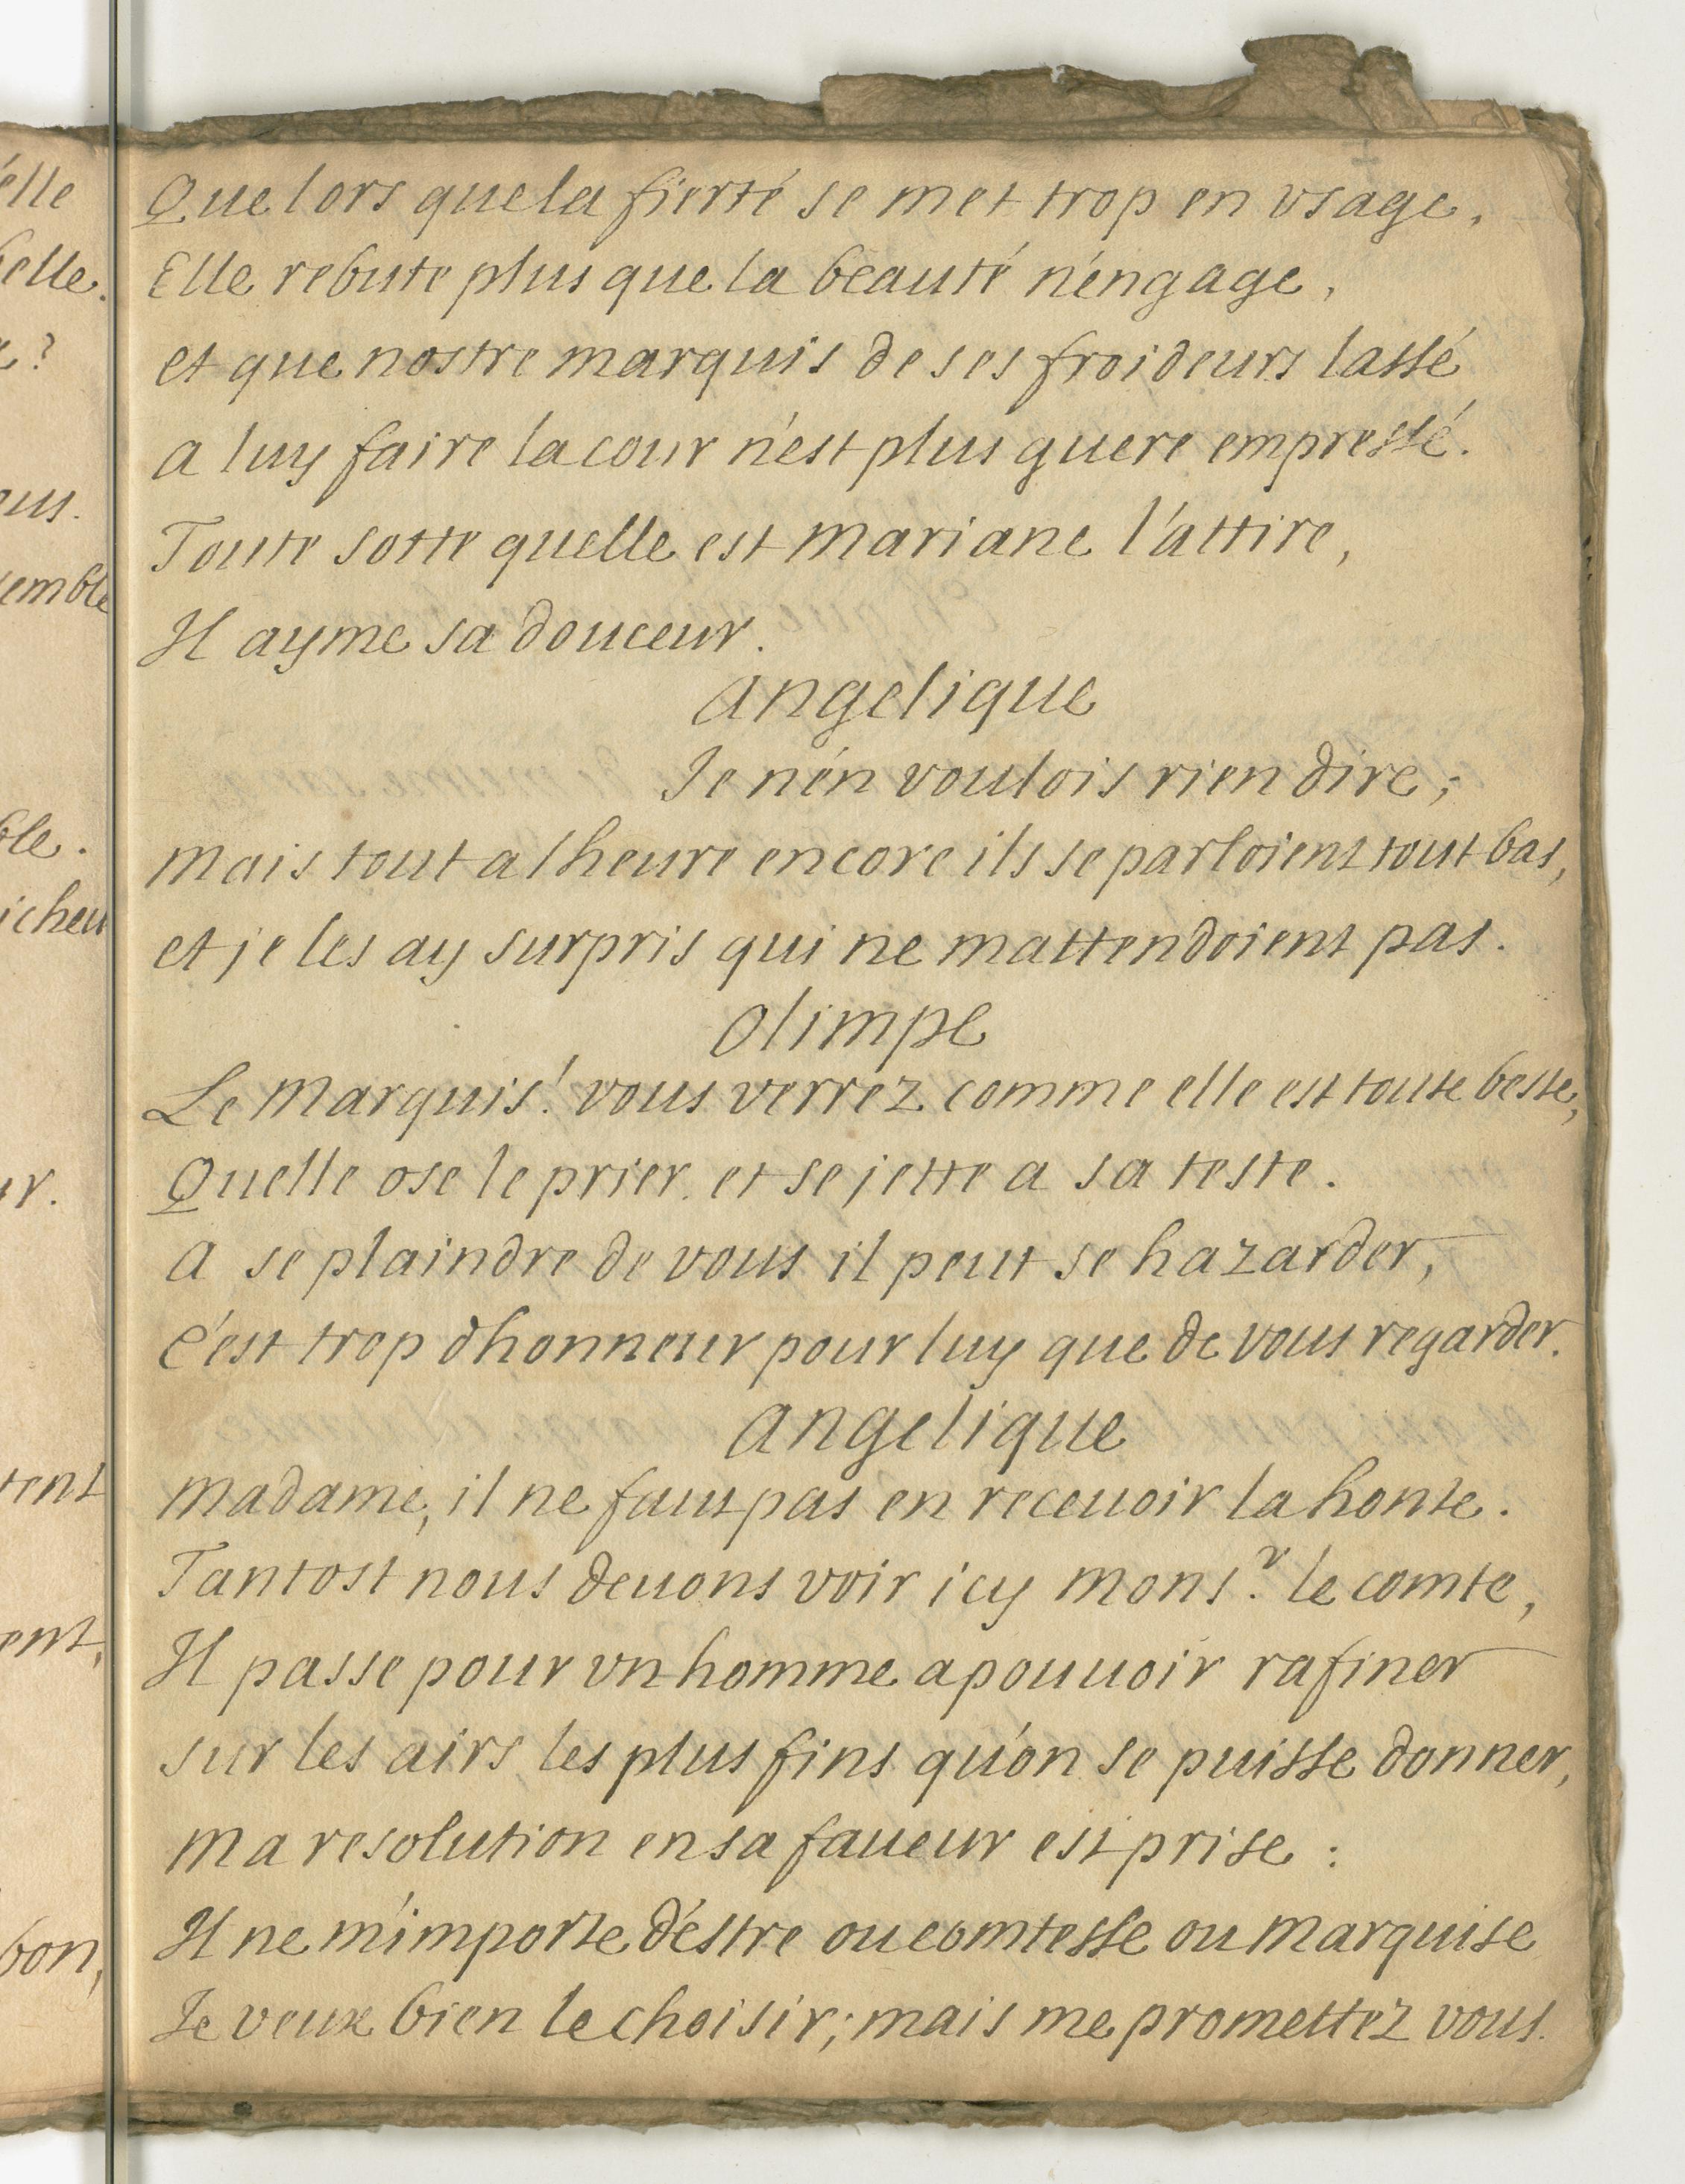 elle
belle.
?
us.
emble
ble.
icheu
ur.
tent
ent,
bon,
Que lors que la fierté se met trop en vsage,
Elle rebute plus que la beauté n'engage,
et que nostre marquis de ses froideurs lassé
a luy faire la cour n'est plus guere empressé.
Toute sotte quelle est Mariane l'attire,
Il ayme sa douceur.
Angelique
Je n'en voulois rien dire;
Mais tout a lheure encore ils se parloient tout bas,
et je les ay surpris qui ne mattendoient pas.
Olimpe
Le Marquis! vous verrez comme elle est toute beste,
Quelle ose le prier et se jette a sa teste.
A se plaindre de vous il peut se hazarder,
C'est trop dhonneur pour luy que de vous regarder.
Angelique
Madame, il ne faut pas en receuoir la honte.
Tantost nous deuons voir icy Mons.r le comte,
Il passe pour vn homme a pouuoir rafiner
sur les airs les plus fins qu'on se puisse donner,
Ma resolution en sa faueur est prise:
Il ne m'importe d'estre ou comtesse ou Marquise
Je veux bien le choisir; mais me promettez vous